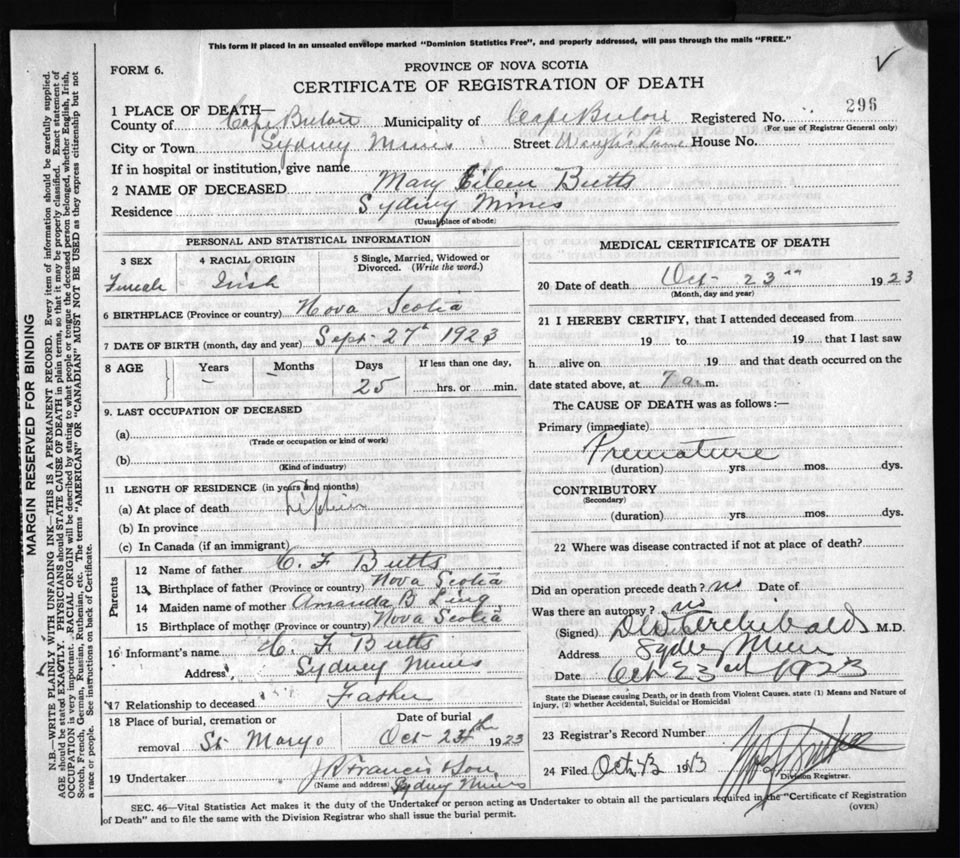 This form if placed in an unsealed envelope marked "Dominion Statistics Free", and properly addressed, will pass through the mails "FREE."
FORM 6.
PROVINCE OF NOVA SCOTIA
CERTIFICATE OF REGISTRATION OF DEATH
1 PLACE OF DEATH—
296
County of Cape Breton Municipality of Cape Breton Registered No.
(For use of Registrar General only)
City or Town Sydney Mines Street Lane House No.
If in hospital or institution, give name
2 NAME OF DECEASED Mary Eileen Butts
Residence Sydney Mines
(Usual place of abode)
PERSONAL AND STATISTICAL INFORMATION
3 SEX 4 RACIAL ORIGIN 5 Single, Married, Widowed or Divorced. (Write the word.)
Female Irish
6 BIRTHPLACE (Province or country) Nova Scotia
7 DATE OF BIRTH (month, day and year) Sept 27th 1923
8 AGE Years Months Days If less than one day,
– – 25 hrs. or min.
9. LAST OCCUPATION OF DECEASED
(a)
(Trade or occupation or kind of work)
(b)
(Kind of industry)
11 LENGTH OF RESIDENCE (in years and months)
(a) At place of death Lifetime
(b) In province
(c) In Canada (if an immigrant)
Parents
12 Name of father C. F Butts
13 Birthplace of father (Province or country) Nova Scotia
14 Maiden name of mother Amanda B Ling
15 Birthplace of mother (Province or country) Nova Scotia
16 Informant's name C. F Butts
Address Sydney Mines
17 Relationship to deceased Father
18 Place of burial, cremation or removal St Marys
Date of burial Oct 24th 1923
19 Undertaker J R Francis & Son
(Name and address) Sydney Mines
MEDICAL CERTIFICATE OF DEATH
20 Date of death Oct 23rd 1923
(Month, day and year)
21 I HEREBY CERTIFY, that I attended deceased from
19 to 19 that I last saw
h alive on 19 and that death occurred on the
date stated above, at 7 a.m.
The CAUSE OF DEATH was as follows:—
Primary (immediate)
Premature
(duration) yrs. mos. dys.
CONTRIBUTORY
(Secondary)
(duration) yrs. mos. dys.
22 Where was disease contracted if not at place of death?
Did an operation precede death? no Date of
Was there an autopsy? no
(Signed) Archibald M.D.
Address Sydney Mines
Date Oct 23rd 1923
State the Disease causing Death, or in death from Violent Causes, state (1) Means and Nature of Injury, (2) whether Accidental, Suicidal or Homicidal
23 Registrar's Record Number
24 Filed Oct 19
Division Registrar.
SEC. 46—Vital Statistics Act makes it the duty of the Undertaker or person acting as Undertaker to obtain all the particulars required in the "Certificate of Registration
of Death" and to file the same with the Division Registrar who shall issue the burial permit.
(OVER)
MARGIN RESERVED FOR BINDING
N.B.—WRITE PLAINLY WITH UNFADING INK—THIS IS A PERMANENT RECORD. Every item of information should be carefully supplied.
AGE should be stated EXACTLY. PHYSICIANS should STATE CAUSE OF DEATH in plain terms, so that it may be properly classified. Exact statement of
OCCUPATION is very important. RACIAL ORIGIN will be described by stating to what people or tongue the deceased person belonged, whether English, Irish,
Scotch, French, German, Russian, Ruthenian, etc. The terms "AMERICAN" OR "CANADIAN" MUST NOT BE USED as they express citizenship but not
a race or people. See instructions on back of Certificate.